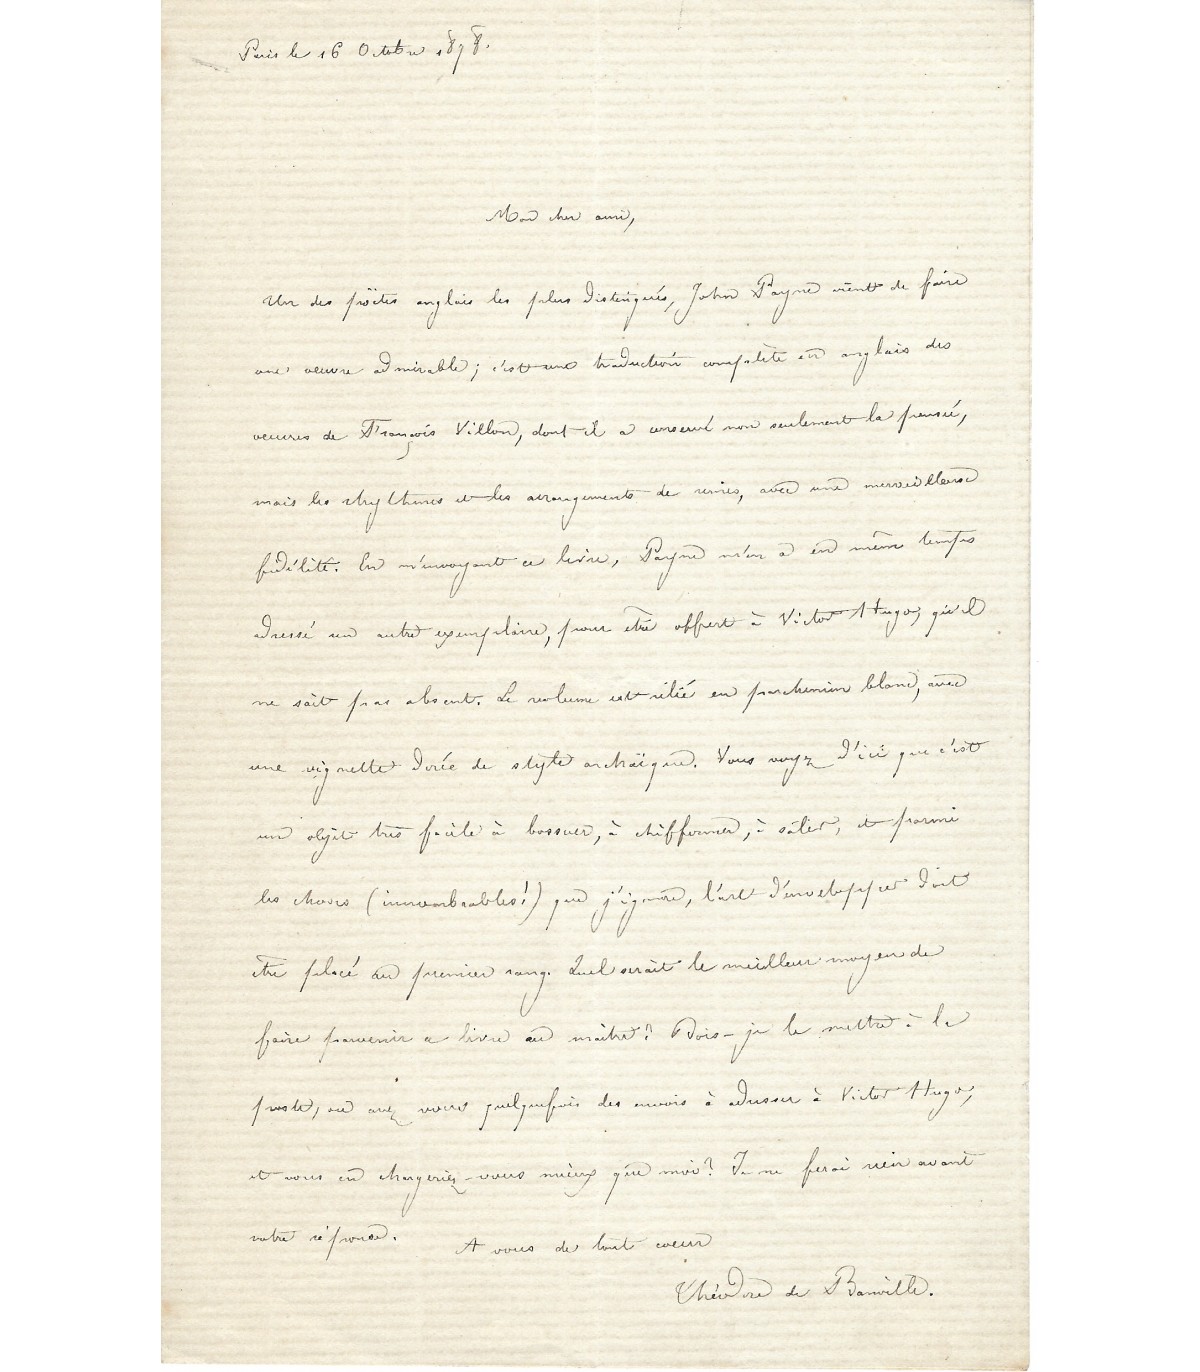 Paris le 16 Octobre 1878.
Mon cher ami,
Un des poëtes anglais les plus distingués, John Payne vient de faire
une œuvre admirable; c'est une traduction complète en anglais des
œuvres de François Villon, dont il a conservé non seulement la pensée,
mais les rhythmes et les arrangements de rimes, avec une merveilleuse
fidélité. En m'envoyant ce livre, Payne m'en a en même temps
adressé un autre exemplaire, pour être offert à Victor Hugo, qu'il
ne sait pas absent. Le volume est relié en parchemin blanc, avec
une vignette dorée de style archaïque. Vous voyez d'ici que c'est
un objet très facile à bossuer, à chiffonner, à salir, et parmi
les choses (innombrables!) que j'ignore, l'art d'envelopper doit
être placé au premier rang. Quel serait le meilleur moyen de
faire parvenir ce livre au maître? Dois-je le mettre à la
poste, ou avez vous quelquefois des envois à adresser à Victor Hugo,
et vous en chargeriez-vous mieux que moi? Je ne ferai rien avant
votre réponse.
A vous de tout cœur
Théodore de Banville.